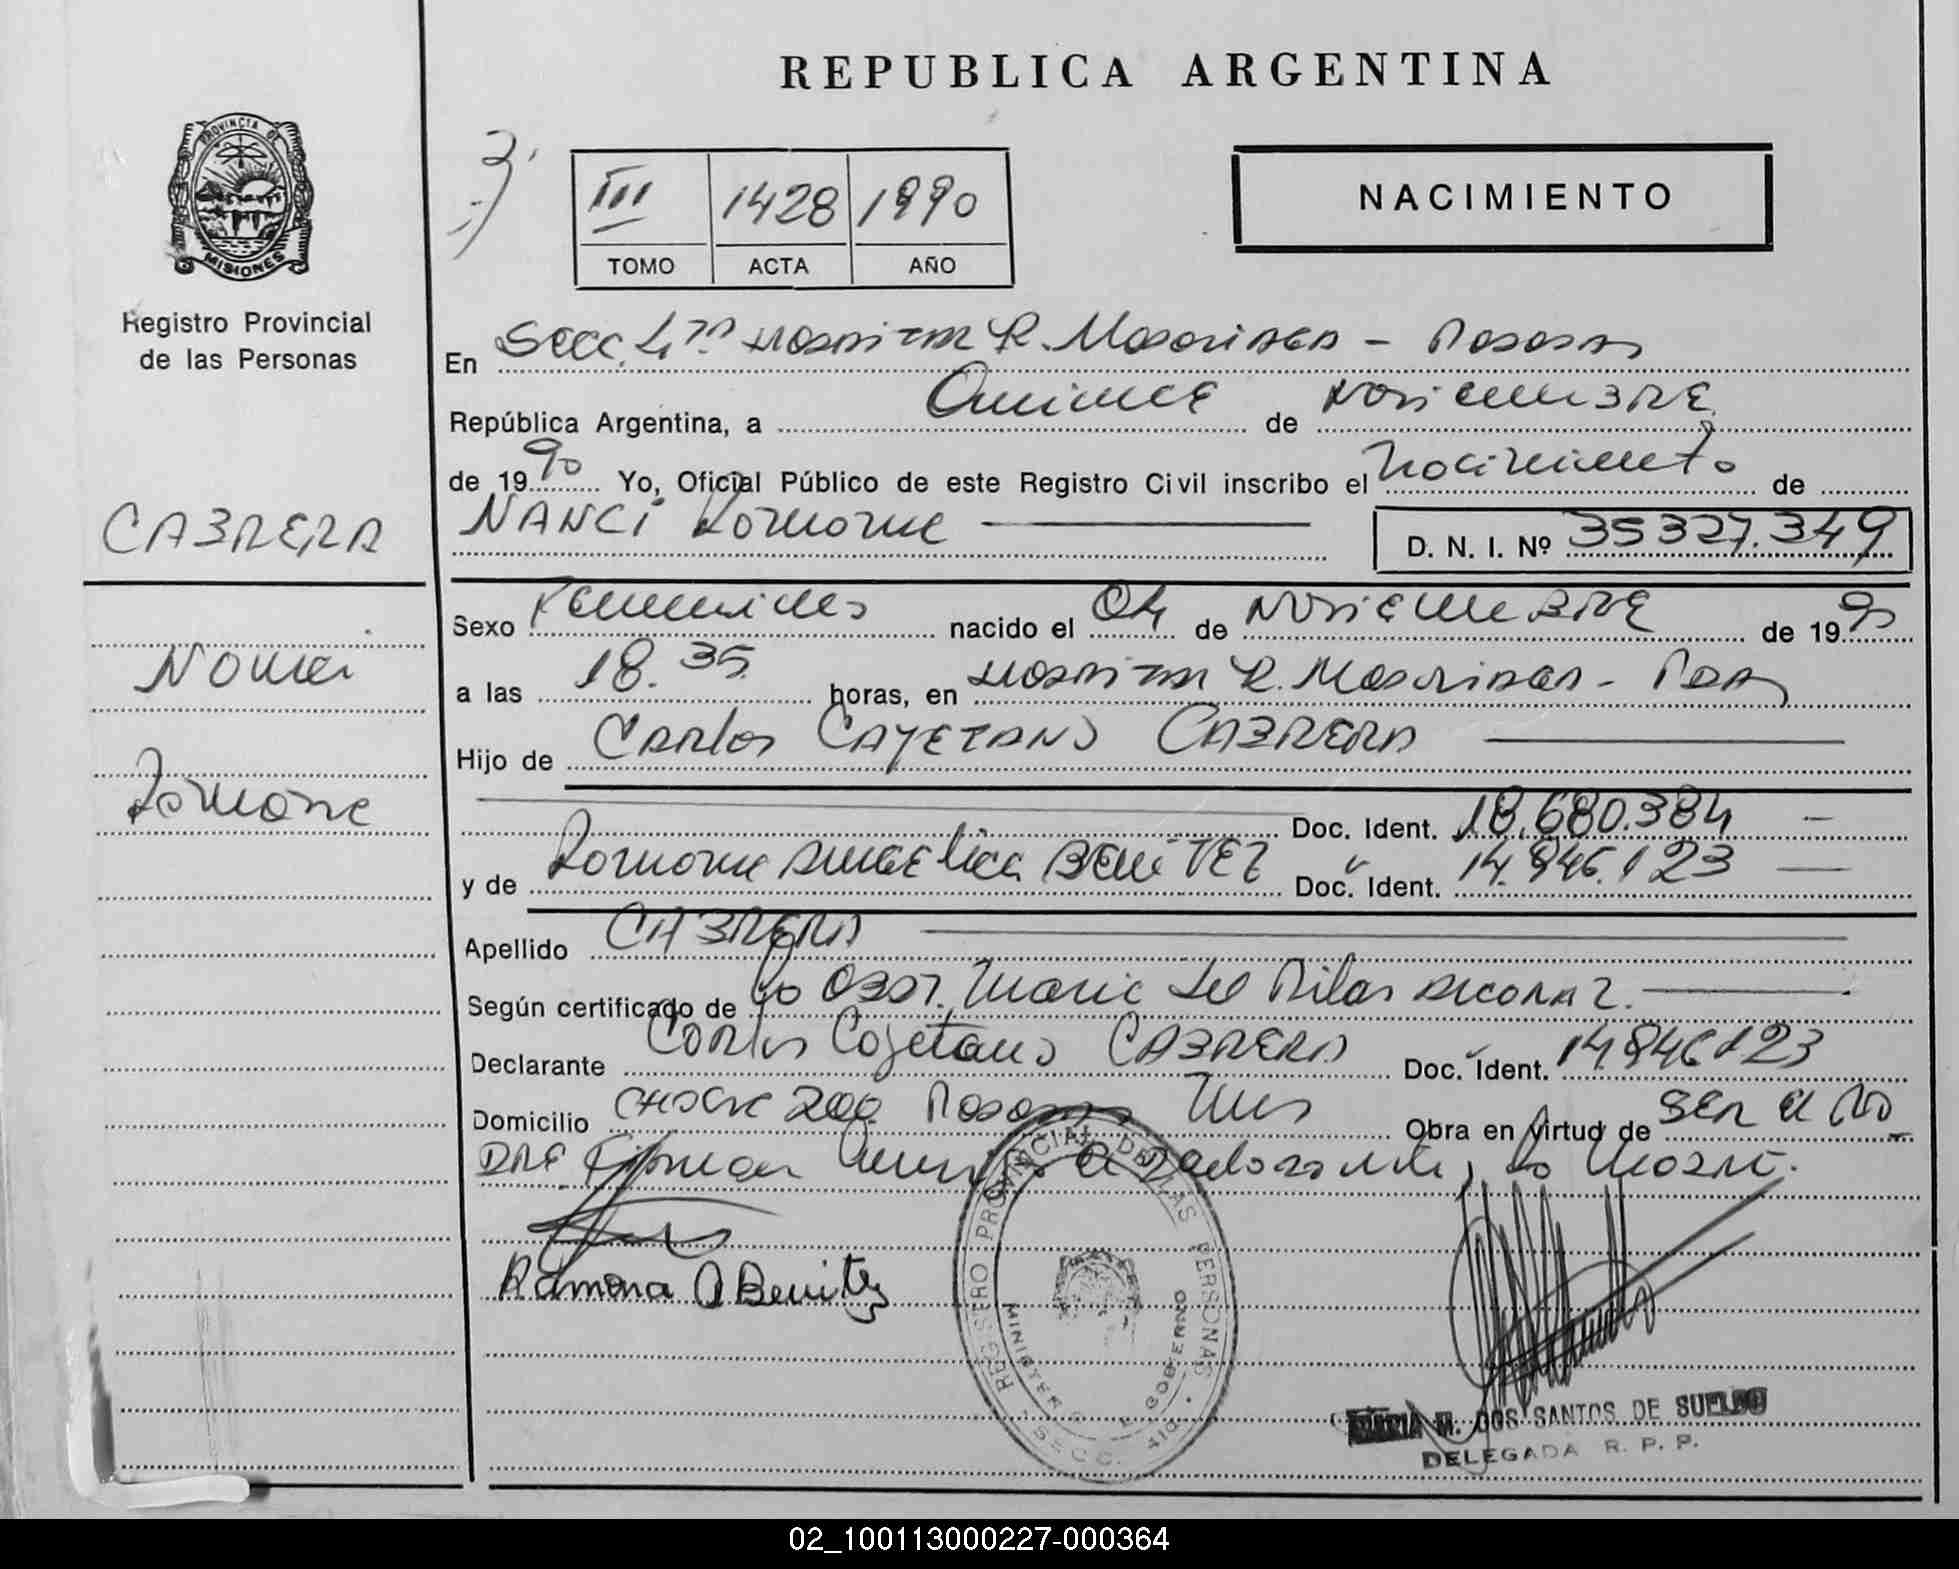 REPUBLICA ARGENTINA
PROVINCIA DE
MISIONES
Registro Provincial
de las Personas
III 1428 1990
TOMO ACTA AÑO
NACIMIENTO
En Secc. 4ta Hospital R. Madariaga - Posadas
República Argentina, a Quince de Noviembre
de 1990 Yo, Oficial Público de este Registro Civil inscribo el Nacimiento de
CABRERA
NANCI Ramona
D. N. I. Nº 35327.349
Sexo Femenino nacido el 04 de NOVIEMBRE de 1990
Nanci
a las 18.35 horas, en Hospital R. Madariaga - Pdas
Hijo de Carlos CAYETANO CABRERA
Ramona
Doc. Ident. 18.680.384 -
y de Ramona ANGElica BENITEZ Doc. Ident. 14.846.123
Apellido CABRERA
Según certificado de la Obst. Maria del Pilar
Declarante Carlos Cayetano CABRERA Doc. Ident. 14.846123
Domicilio 200 Posadas Mnes Obra en virtud de SER el PA
DRE Firman la Madre.
Ramona A Benitez
REGISTRO PROVINCIAL DE LAS PERSONAS
GOBIERNO
SECC.
MARIA M. DOS SANTOS DE SUELDO
DELEGADA R. P. P.
02_100113000227-000364